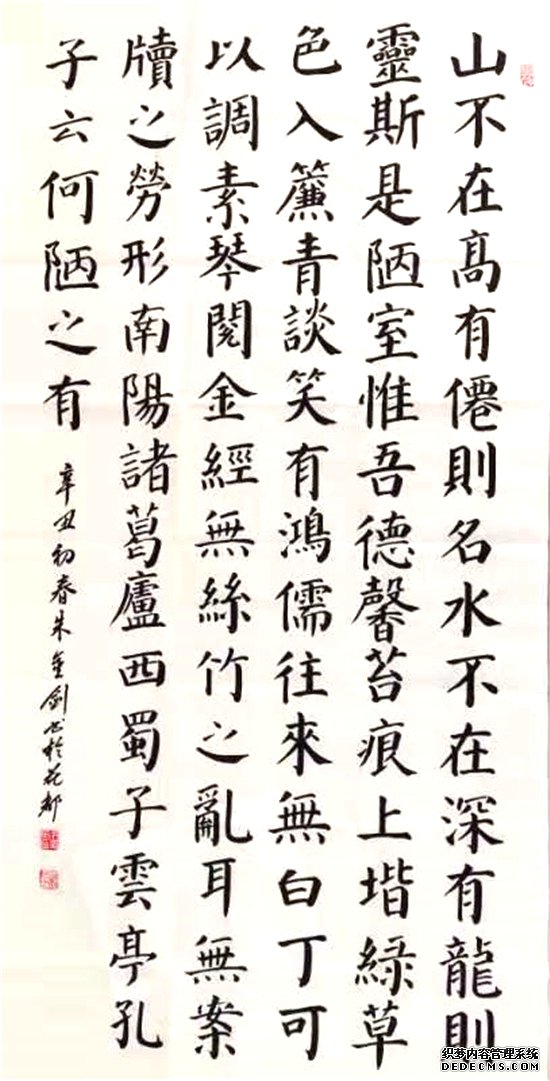 山不在髙有僊則名水不在深有龍則
靈斯是陋室惟吾德馨苔痕上堦綠草
色入簾青談笑有鴻儒往來無白丁可
以調素琴閱金經無絲竹之亂耳無案
牘之勞形南陽諸葛廬西蜀子雲亭孔
子云何陋之有
辛丑初春朱金劍书於花都
织梦内容管理系统
DEDECMS.COM